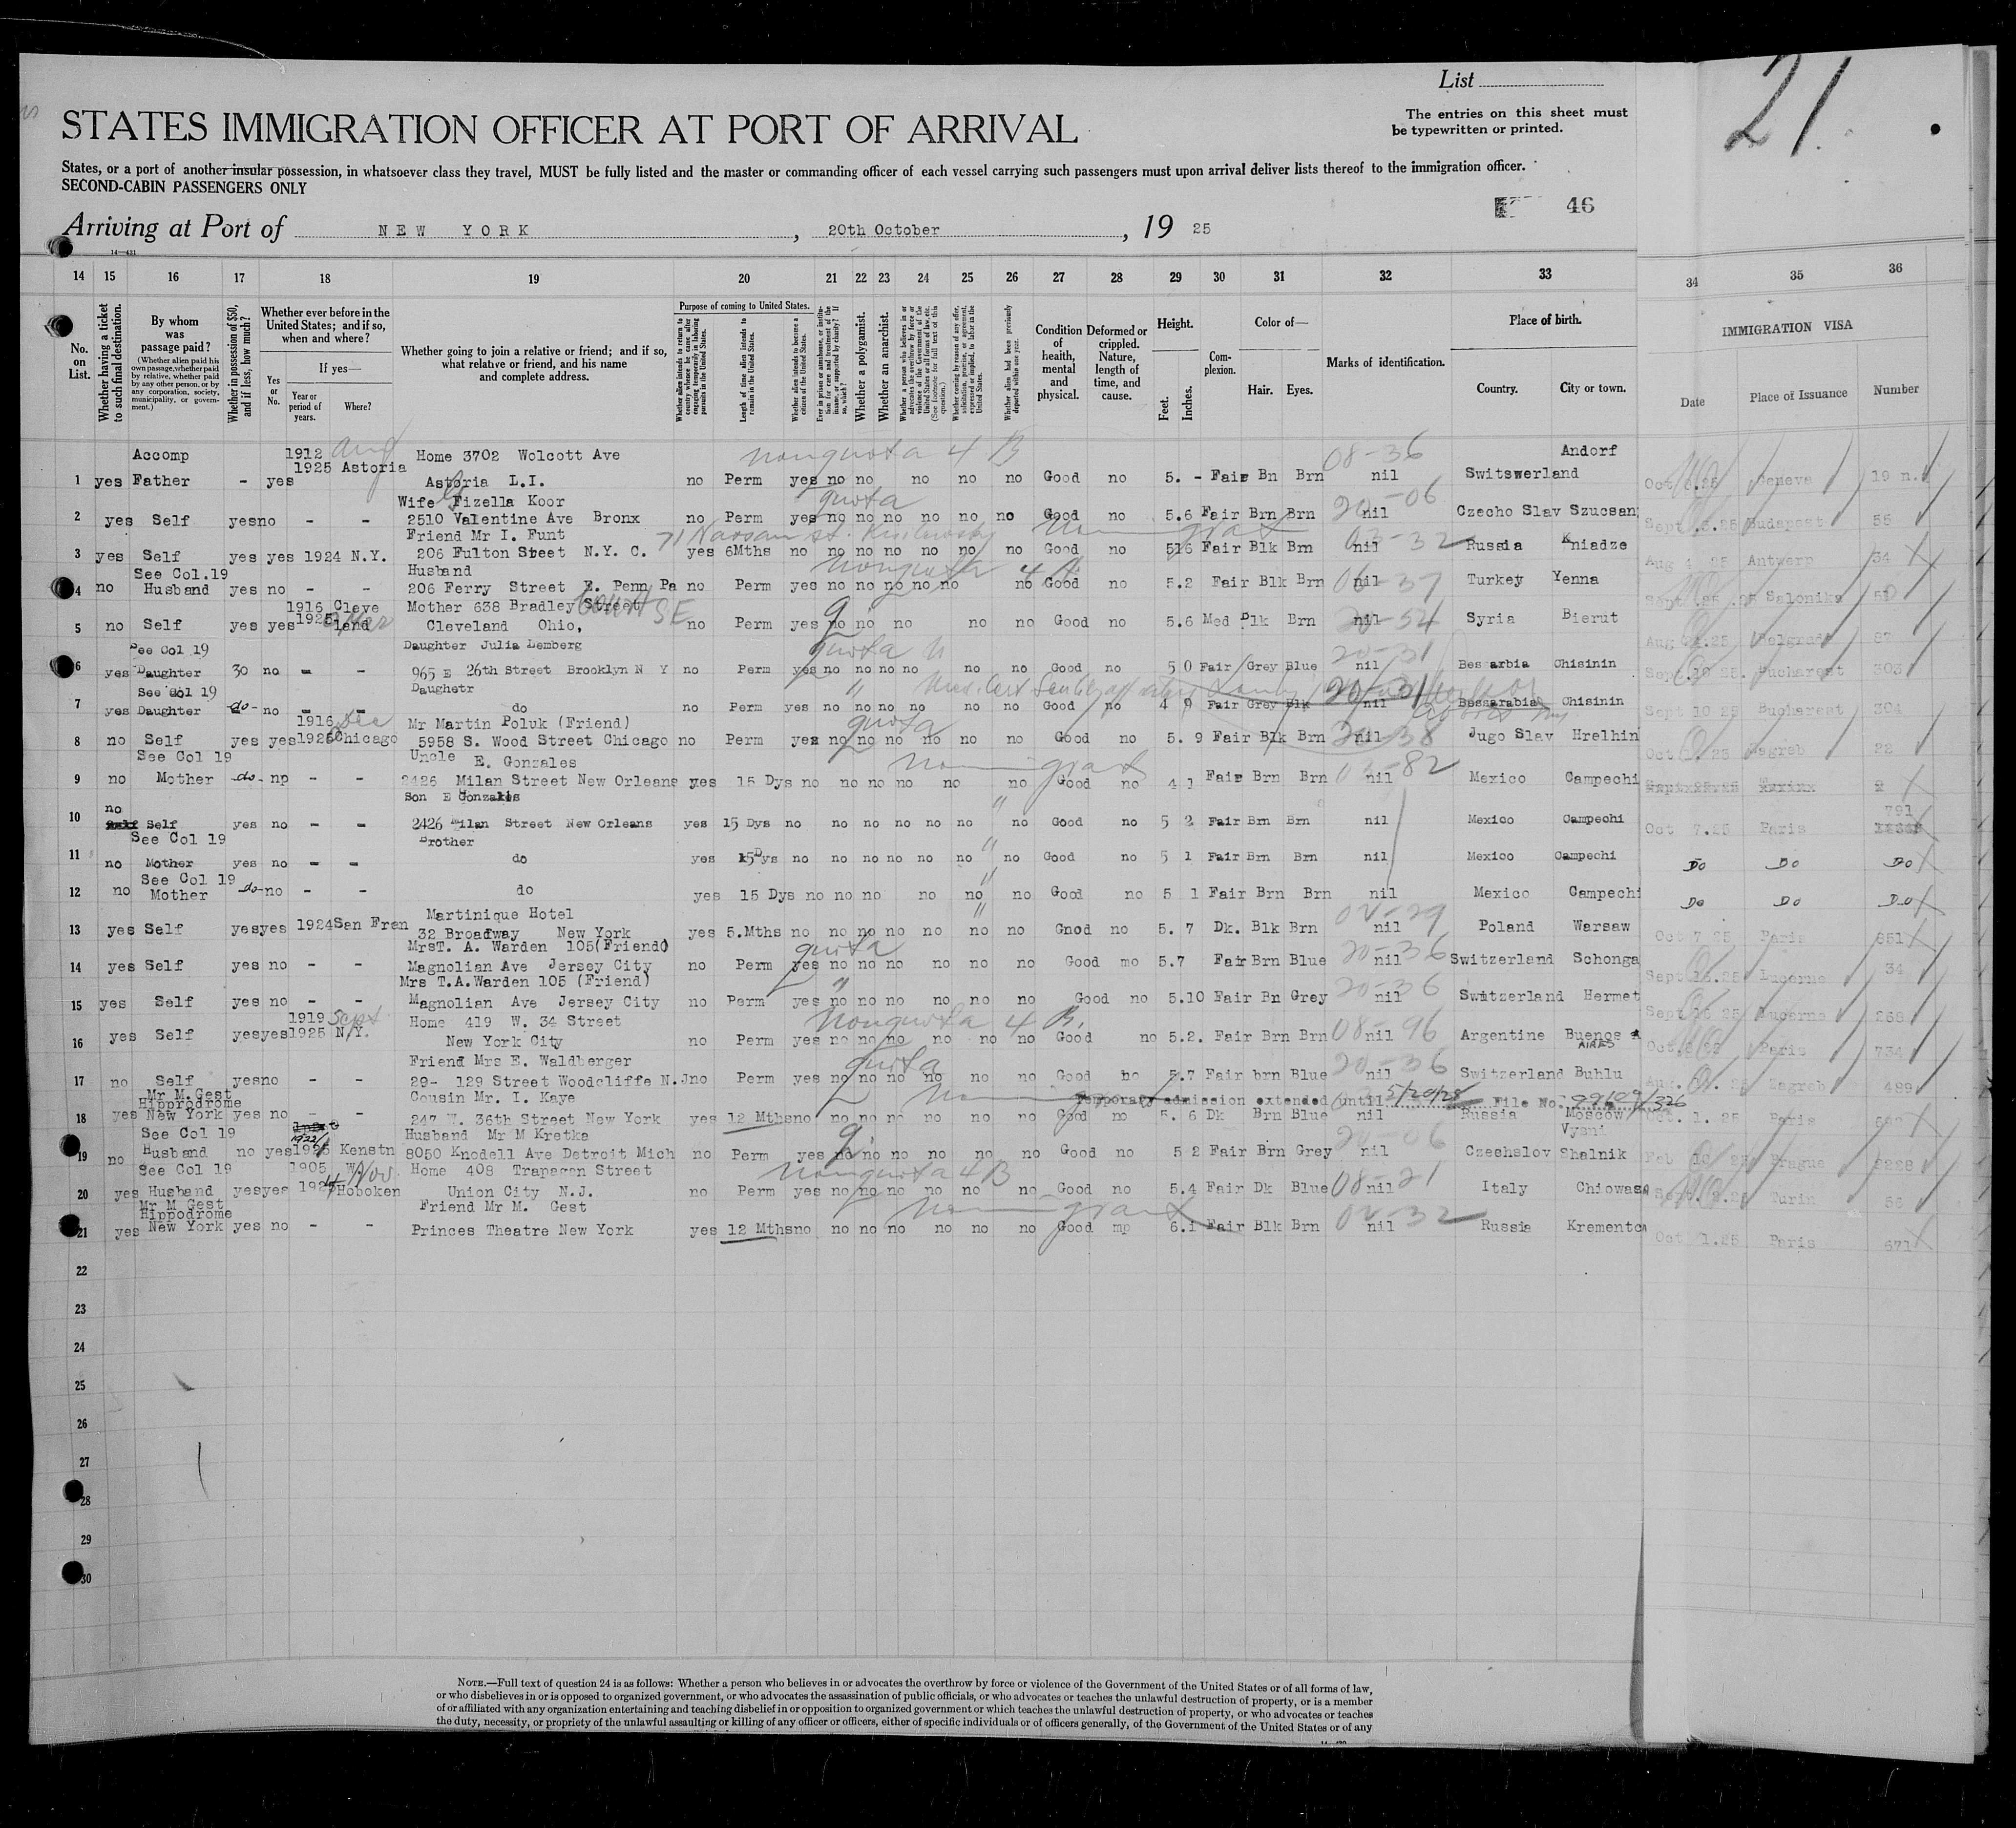 List
21.
The entries on this sheet must
be typewritten or printed.
STATES IMMIGRATION OFFICER AT PORT OF ARRIVAL
States, or a port of another insular possession, in whatsoever class they travel, MUST be fully listed and the master or commanding officer of each vessel carrying such passengers must upon arrival deliver lists thereof to the immigration officer.
SECOND-CABIN PASSENGERS ONLY
46
Arriving at Port of NEW YORK, 20th October, 19 25
14 15 16 17 18 19 20 21 22 23 24 25 26 27 28 29 30 31 32 33 34 35 36
No. on List.
Whether having a ticket to such final destination.
By whom was passage paid?
(Whether alien paid his own passage, whether paid by relative, whether paid by any other person, or by any corporation, society, municipality, or government.)
Whether in possession of $50, and if less, how much?
Whether ever before in the United States; and if so, when and where?
Yes or No.
If yes—
Year or period of years.
Where?
Whether going to join a relative or friend; and if so, what relative or friend, and his name and complete address.
Purpose of coming to United States.
Whether alien intends to return to country whence he came after engaging temporarily in laboring pursuits in the United States.
Length of time alien intends to remain in the United States.
Whether alien intends to become a citizen of the United States.
Ever in prison or almshouse, or institution for care and treatment of the insane, or supported by charity? If so, which?
Whether a polygamist.
Whether an anarchist.
Whether a person who believes in or advocates the overthrow by force or violence of the Government of the United States or all forms of law, etc. (See footnote for full text of this question.)
Whether coming by reason of any offer, solicitation, promise, or agreement, expressed or implied, to labor in the United States.
Whether alien had been previously deported within one year.
Condition of health, mental and physical.
Deformed or crippled. Nature, length of time, and cause.
Height.
Feet. Inches.
Complexion.
Color of—
Hair. Eyes.
Marks of identification.
Place of birth.
Country. City or town.
IMMIGRATION VISA
Date Place of Issuance Number
Accomp 1912 Aug Home 3702 Wolcott Ave nonquota 4 B 08-36 Andorf
1 yes Father - yes 1925 Astoria Astoria L.I. no Perm yes no no no no no Good no 5. - Fair Bn Brn nil Switswerland Geneve 19 n.
Wife Fizella Koor quota 20-06
2 yes Self yes no - - 2510 Valentine Ave Bronx no Perm yes no no no no no no Good no 5.6 Fair Brn Brn nil Czecho Slav Szucsan Budapest 56
Friend Mr I. Funt 71 Nassau St.
3 yes Self yes yes 1924 N.Y. 206 Fulton Street N.Y. C. yes 6Mths no no no no no no no Good no 516 Fair Blk Brn nil Russia Kniadze Aug 4 25 Antwerp 34
See Col.19 Husband nonquota 06-37
4 no Husband yes no - - 206 Ferry Street E. Penn Pa no Perm yes no no no no no no Good no 5.2 Fair Blk Brn nil Turkey Yenna Salonika 50
1916 Cleve Mother 638 Bradley Street Court SE 20-54
5 no Self yes yes 1925 land Cleveland Ohio, no Perm yes no no no no no Good no 5.6 Med Blk Brn nil Syria Bierut Belgrade 87
See Col 19 Daughter Julia Lemberg quota 20-31
6 yes Daughter 30 no - - 965 E 26th Street Brooklyn N Y no Perm yes no no no no no no Good no 5 0 Fair Grey Blue nil Bes arbia Chisinin Bucharest 303
See Col 19 Daughetr
7 yes Daughter -do- no - - do no Perm yes no no no no no no Good no 4 9 Fair Grey Blk nil Bessarabia Chisinin Sept 10 25 Bucharest 304
1916 Dec Mr Martin Poluk (Friend) quota 20-38
8 no Self yes yes 1925 Chicago 5958 S. Wood Street Chicago no Perm yes no no no no no no Good no 5. 9 Fair Blk Brn nil Jugo Slav Hrelhin Zagreb 22
See Col 19 Uncle E. Gonzales
9 no Mother -do- no - - 2426 Milan Street New Orleans yes 15 Dys no no no no no no Good no 4 1 Fair Brn Brn nil Mexico Campechi
no Son E Gonzales 791
10 Self yes no - - 2426 Milan Street New Orleans yes 15 Dys no no no no no no no Good no 5 2 Fair Brn Brn nil Mexico Campechi Oct 7.25 Paris
See Col 19 Brother
11 no Mother yes no - - do yes 15Dys no no no no no no no Good no 5 1 Fair Brn Brn nil Mexico Campechi Do Do Do
See Col 19
12 no Mother -do- no - - do yes 15 Dys no no no no no no Good no 5 1 Fair Brn Brn nil Mexico Campechi Do Do Do
Martinique Hotel
13 yes Self yes yes 1924 San Fran 32 Broadway New York yes 5.Mths no no no no no no no Gnod no 5. 7 Dk. Blk Brn nil Poland Warsaw Oct 7 25 Paris 851
MrsT. A. Warden 105(Friend) quota 20-36
14 yes Self yes no - - Magnolian Ave Jersey City no Perm yes no no no no no no Good mo 5.7 Fair Brn Blue nil Switzerland Schonga Lucerne 34
Mrs T.A.Warden 105 (Friend) 20-36
15 yes Self yes no - - Magnolian Ave Jersey City no Perm yes no no no no no no Good no 5.10 Fair Bn Grey nil Switzerland Hermet Lucerne 268
1919 Sept Home 419 W. 34 Street Nonquota 4 B. 08-96
16 yes Self yes yes 1925 N.Y. New York City no Perm yes no no no no no no Good no 5.2. Fair Brn Brn nil Argentine Buenos AIRES Paris 734
Friend Mrs E. Waldberger quota 20-36
17 no Self yes no - - 29- 129 Street Woodcliffe N.J no Perm yes no no no no no no Good no 5.7 Fair brn Blue nil Switzerland Buhlu Zagreb 489
Mr M.Gest Hipprodrome Cousin Mr. I. Kaye Temporaty admission extended until 5/20/28 File No.
18 yes New York yes no - - 247 W. 36th Street New York yes 12 Mths no no no no no no no Good mo 5. 6 Dk Brn Blue nil Russia Moscow Oct. 1. 25 Paris
See Col 19 1922 Husband Mr M Kretke 20-06 Vysni
19 no Husband no yes 1925 Kenstn 8050 Knodell Ave Detroit Mich no Perm yes no no no no no no Good no 5 2 Fair Brn Grey nil Czechslov Shelnik Prague
See Col 19 1905 Nov Home 408 Trapagen Street nonquota 4 B 08-21
20 yes Husband yes yes Hoboken Union City N.J. no Perm yes no no no no no no Good no 5.4 Fair Dk Blue nil Italy Chiowasa Turin 56
Mr M Gest Hippodrome Friend Mr M. Gest
21 yes New York yes no - - Princes Theatre New York yes 12 Mths no no no no no no no Good mp 6.1 Fair Blk Brn nil Russia Krementow Oct 1.25 Paris 671
22
23
24
25
26
27
28
29
30
NOTE.—Full text of question 24 is as follows: Whether a person who believes in or advocates the overthrow by force or violence of the Government of the United States or of all forms of law,
or who disbelieves in or is opposed to organized government, or who advocates the assassination of public officials, or who advocates or teaches the unlawful destruction of property, or is a member
of or affiliated with any organization entertaining and teaching disbelief in or opposition to organized government or which teaches the unlawful destruction of property, or who advocates or teaches
the duty, necessity, or propriety of the unlawful assaulting or killing of any officer or officers, either of specific individuals or of officers generally, of the Government of the United States or of any